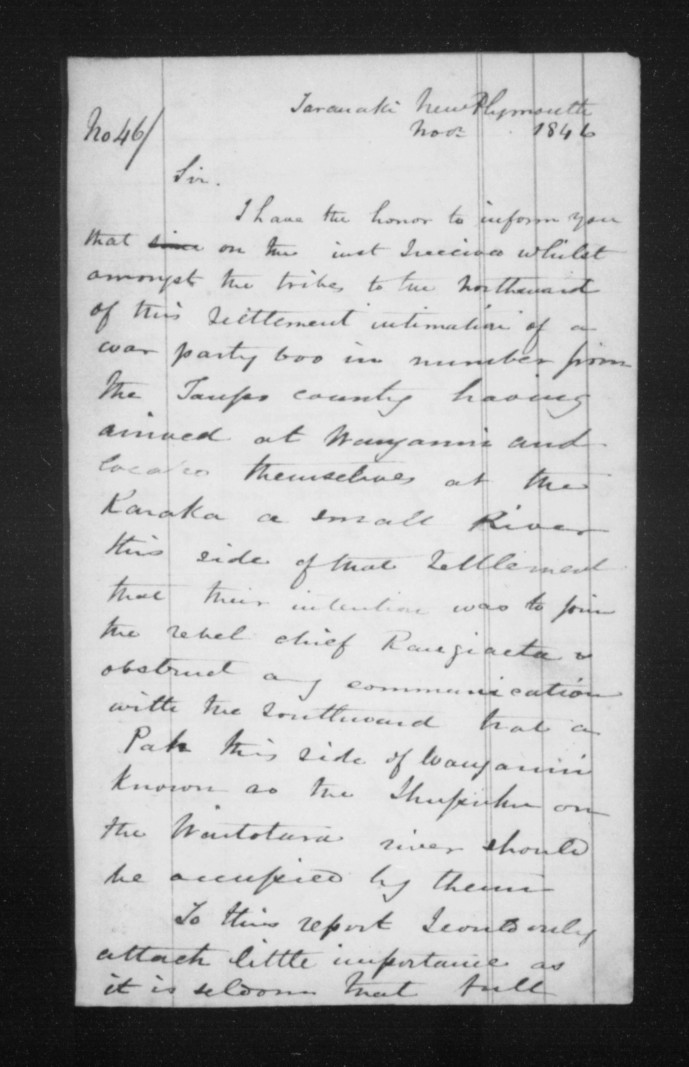 Taranaki New Plymouth
No 46/ Novr 1846
Sir.
I have the honor to inform you
that since on the inst I received whilst
amongst the tribes to the Northward
of this Settlement intimation of a
war party 600 in number from
the Taupo country having
arrived at Wanganui and
located themselves at the
Karaka a small River
this side of that Settlement
that their intention was to join
the rebel chief Rangiaeta &
obstruct any communication
with the Southward that a
Pah this side of Wanganui
known as the Ihupuku on
the Waitotara river should
be occupied by them
To this report I could only
attach little importance as
it is seldom that full